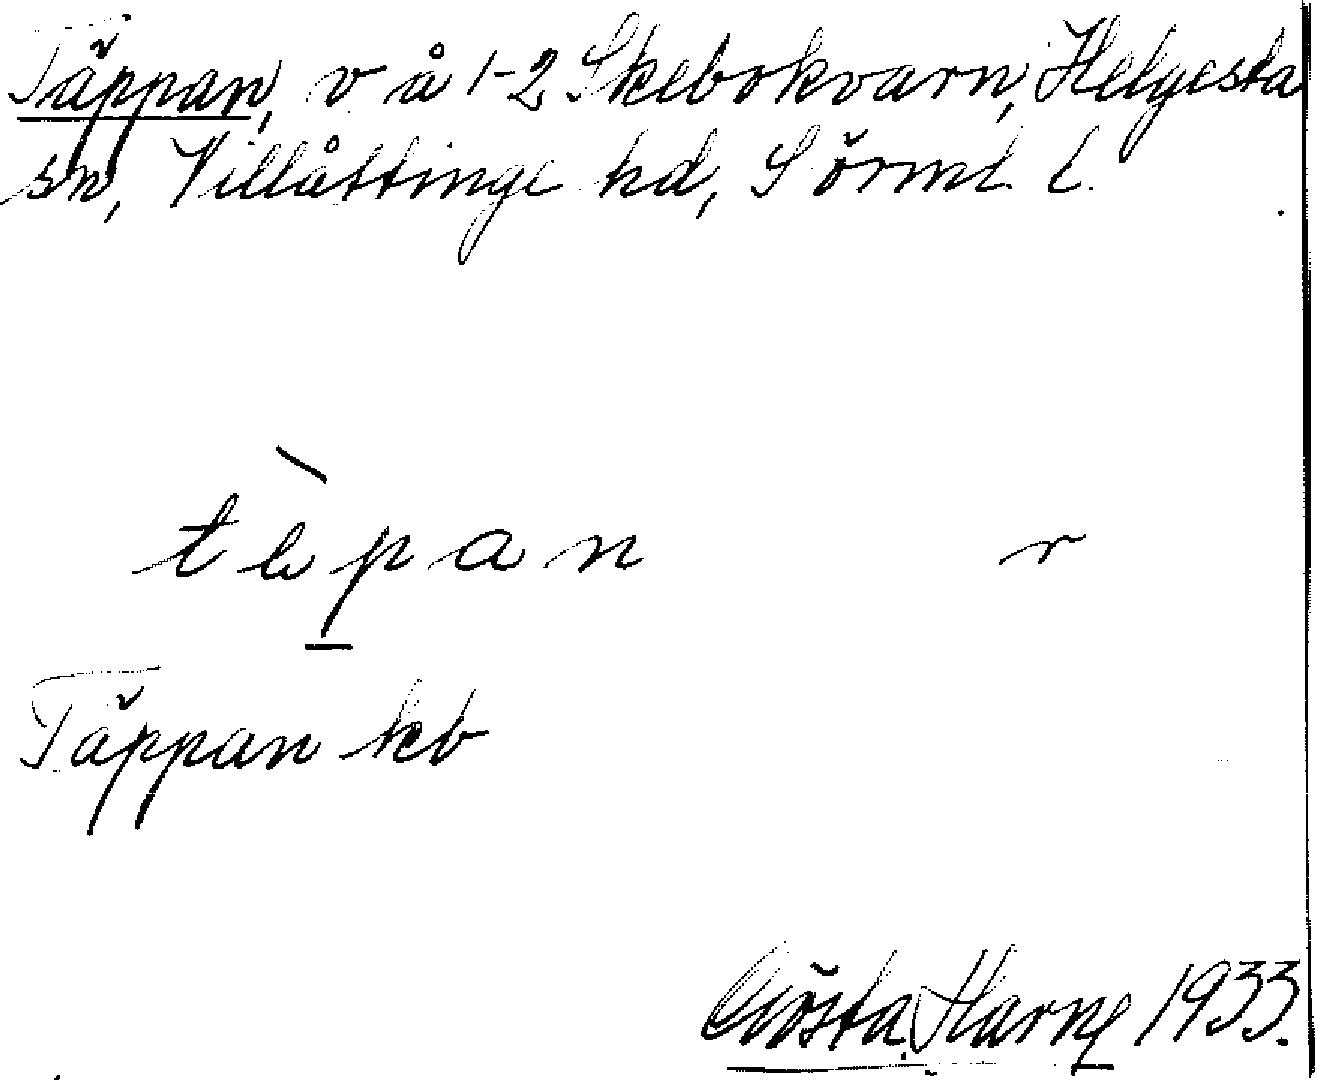 Täppan, v å 1-2 Skebokvarn, Helgesta
sn, Villåttinge hd, Sörml. l.
tèpan r
Täppan kb
Gösta Harne 1933.